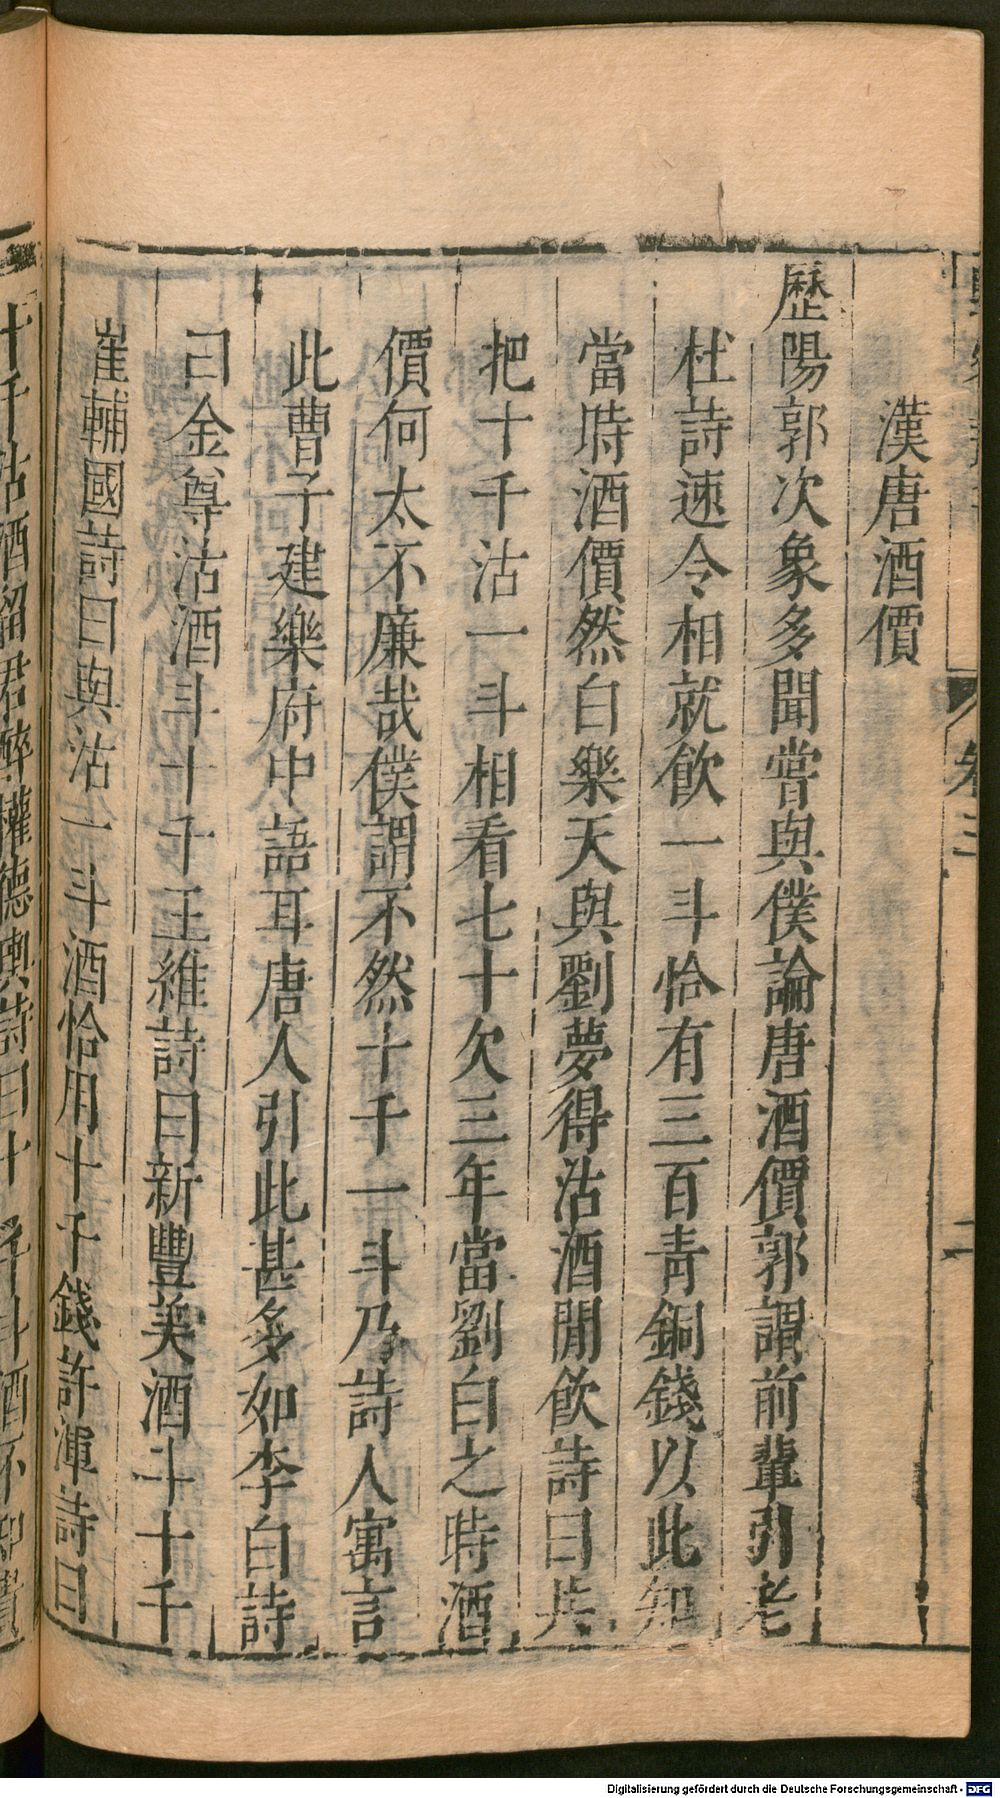 漢唐酒價
歷陽郭次象多聞嘗與僕論唐酒價郭謂前輩引老
杜詩速令相就飲一斗恰有三百青銅錢以此知
當時酒價然白樂天與劉夢得沽酒閒飲詩曰共
把十千沽一斗相看七十欠三年當劉白之時酒
價何太不廉哉僕謂不然十千一斗乃詩人寓言
此曹子建樂府中語耳唐人引此甚多如李白詩
曰金尊沽酒斗十千王維詩曰新豐美酒斗十千
崔輔國詩曰與沽一斗酒恰用十千錢許渾詩曰
十千沽酒留君醉權德輿詩曰十千斗酒不知貴
卷三
二
Digitalisierung gefördert durch die Deutsche Forschungsgemeinschaft - DFG